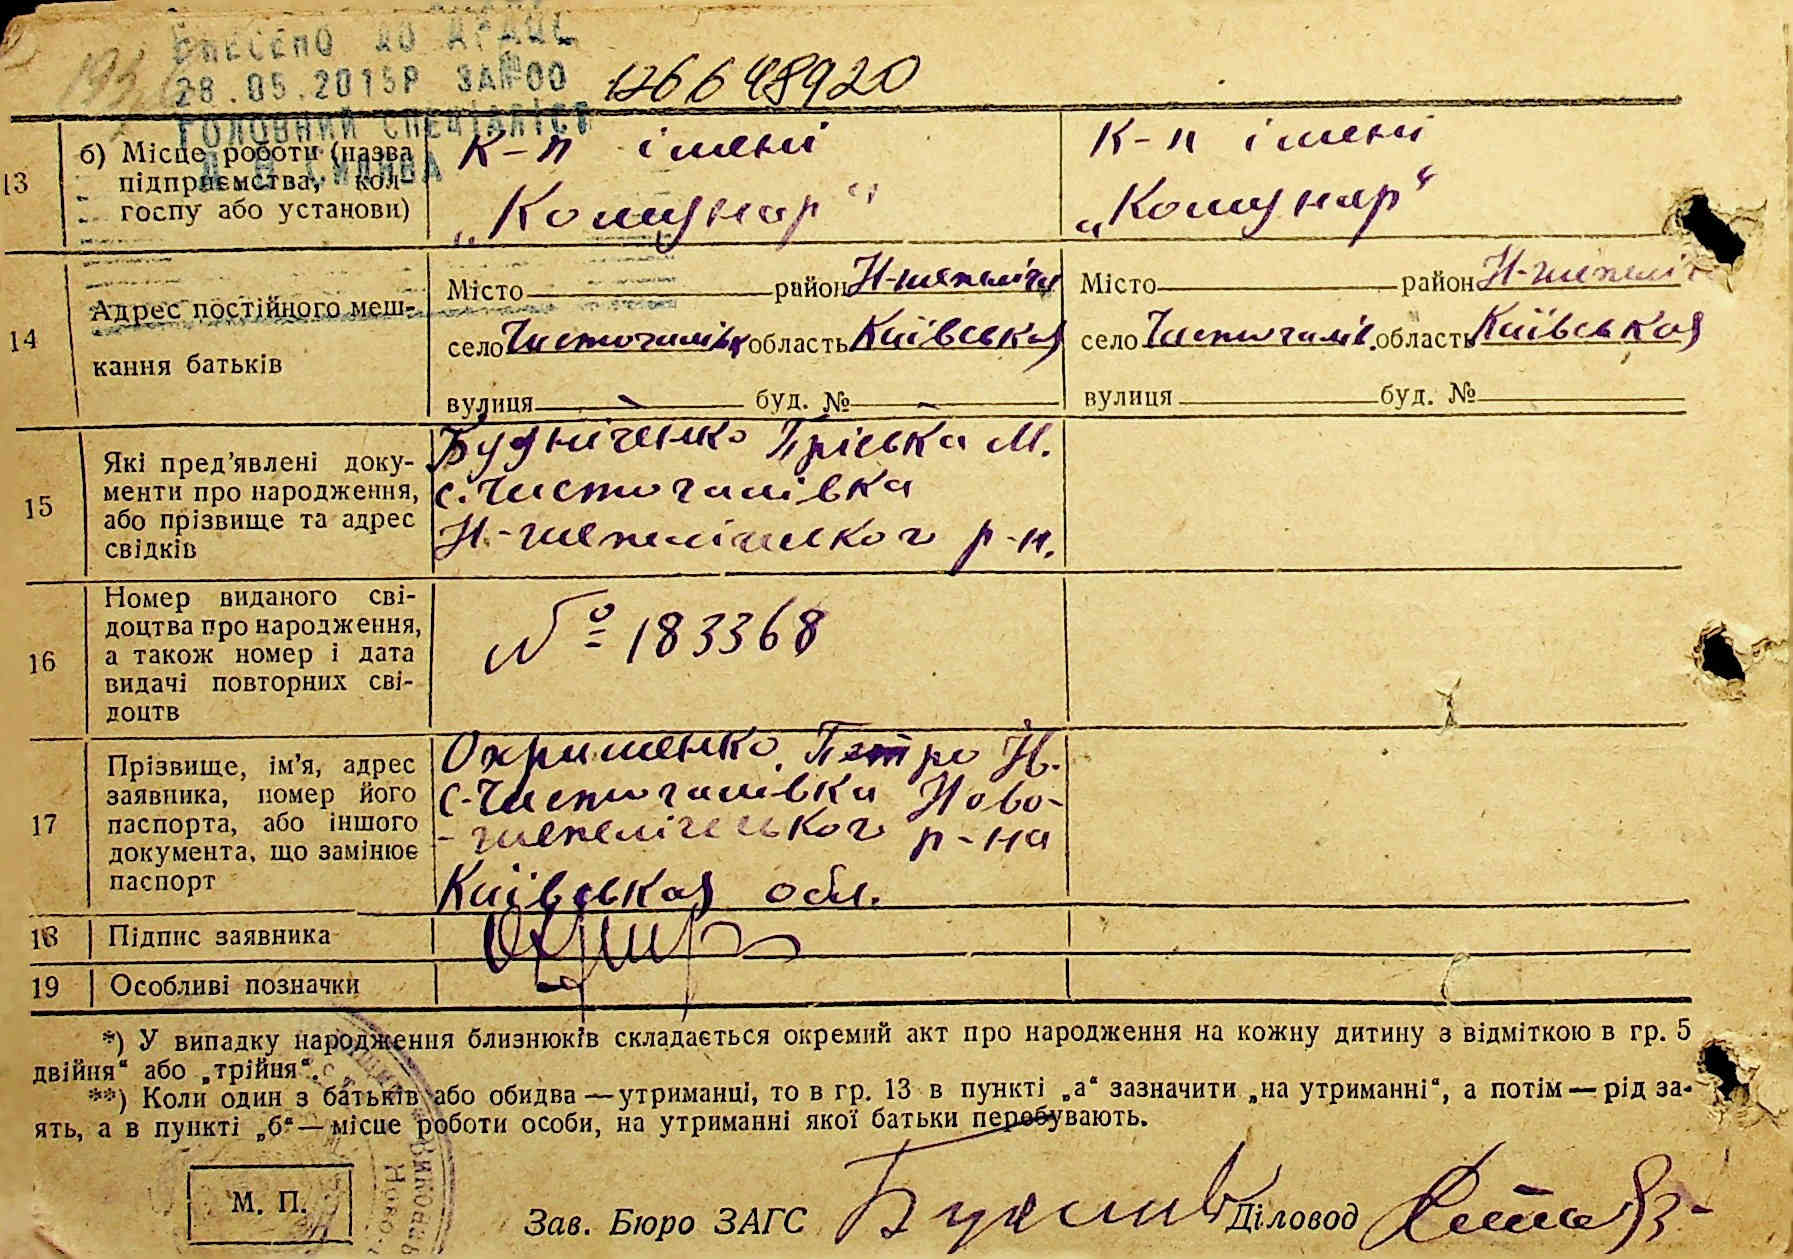 ВНЕСЕНО ДО ДРАЦС
28.05.2015Р ЗАП№00 126648920
ГОЛОВНИЙ СПЕЦІАЛІСТ
13 б) Місце роботи (назва підприємства, кол-
госпу або установи)
К-п імені
„Комунар“
К-п імені
„Комунар“
14 Адрес постійного меш-
кання батьків
Місто район Н-шепеличі
село Чистогалівк область Київськая
вулиця буд. №
Місто район Н-шепеліч
село Чистогалів. область Київськая
вулиця буд. №
15 Які пред’явлені доку-
менти про народження,
або прізвище та адрес
свідків
Будніченко М.
с. Чистогалівка
Н-шепелицкого р-н.
16 Номер виданого сві-
доцтва про народження,
а також номер і дата
видачі повторних сві-
доцтв
№ 183368
17 Прізвище, ім’я, адрес
заявника, номер його
паспорта, або іншого
документа, що замінює
паспорт
Охрименко Петро Н.
с-Чистогалівка Ново-
-шепеліческого р-на
Київськая обл.
18 Підпис заявника
19 Особливі позначки
*) У випадку народження близнюків складається окремий акт про народження на кожну дитину з відміткою в гр. 5
двійня“ або „трійня“.
**) Коли один з батьків або обидва — утриманці, то в гр. 13 в пункті „а“ зазначити „на утриманні“, а потім — рід за-
ять, а в пункті „б“ — місце роботи особи, на утриманні якої батьки перебувають.
М. П.
Зав. Бюро ЗАГС Діловод